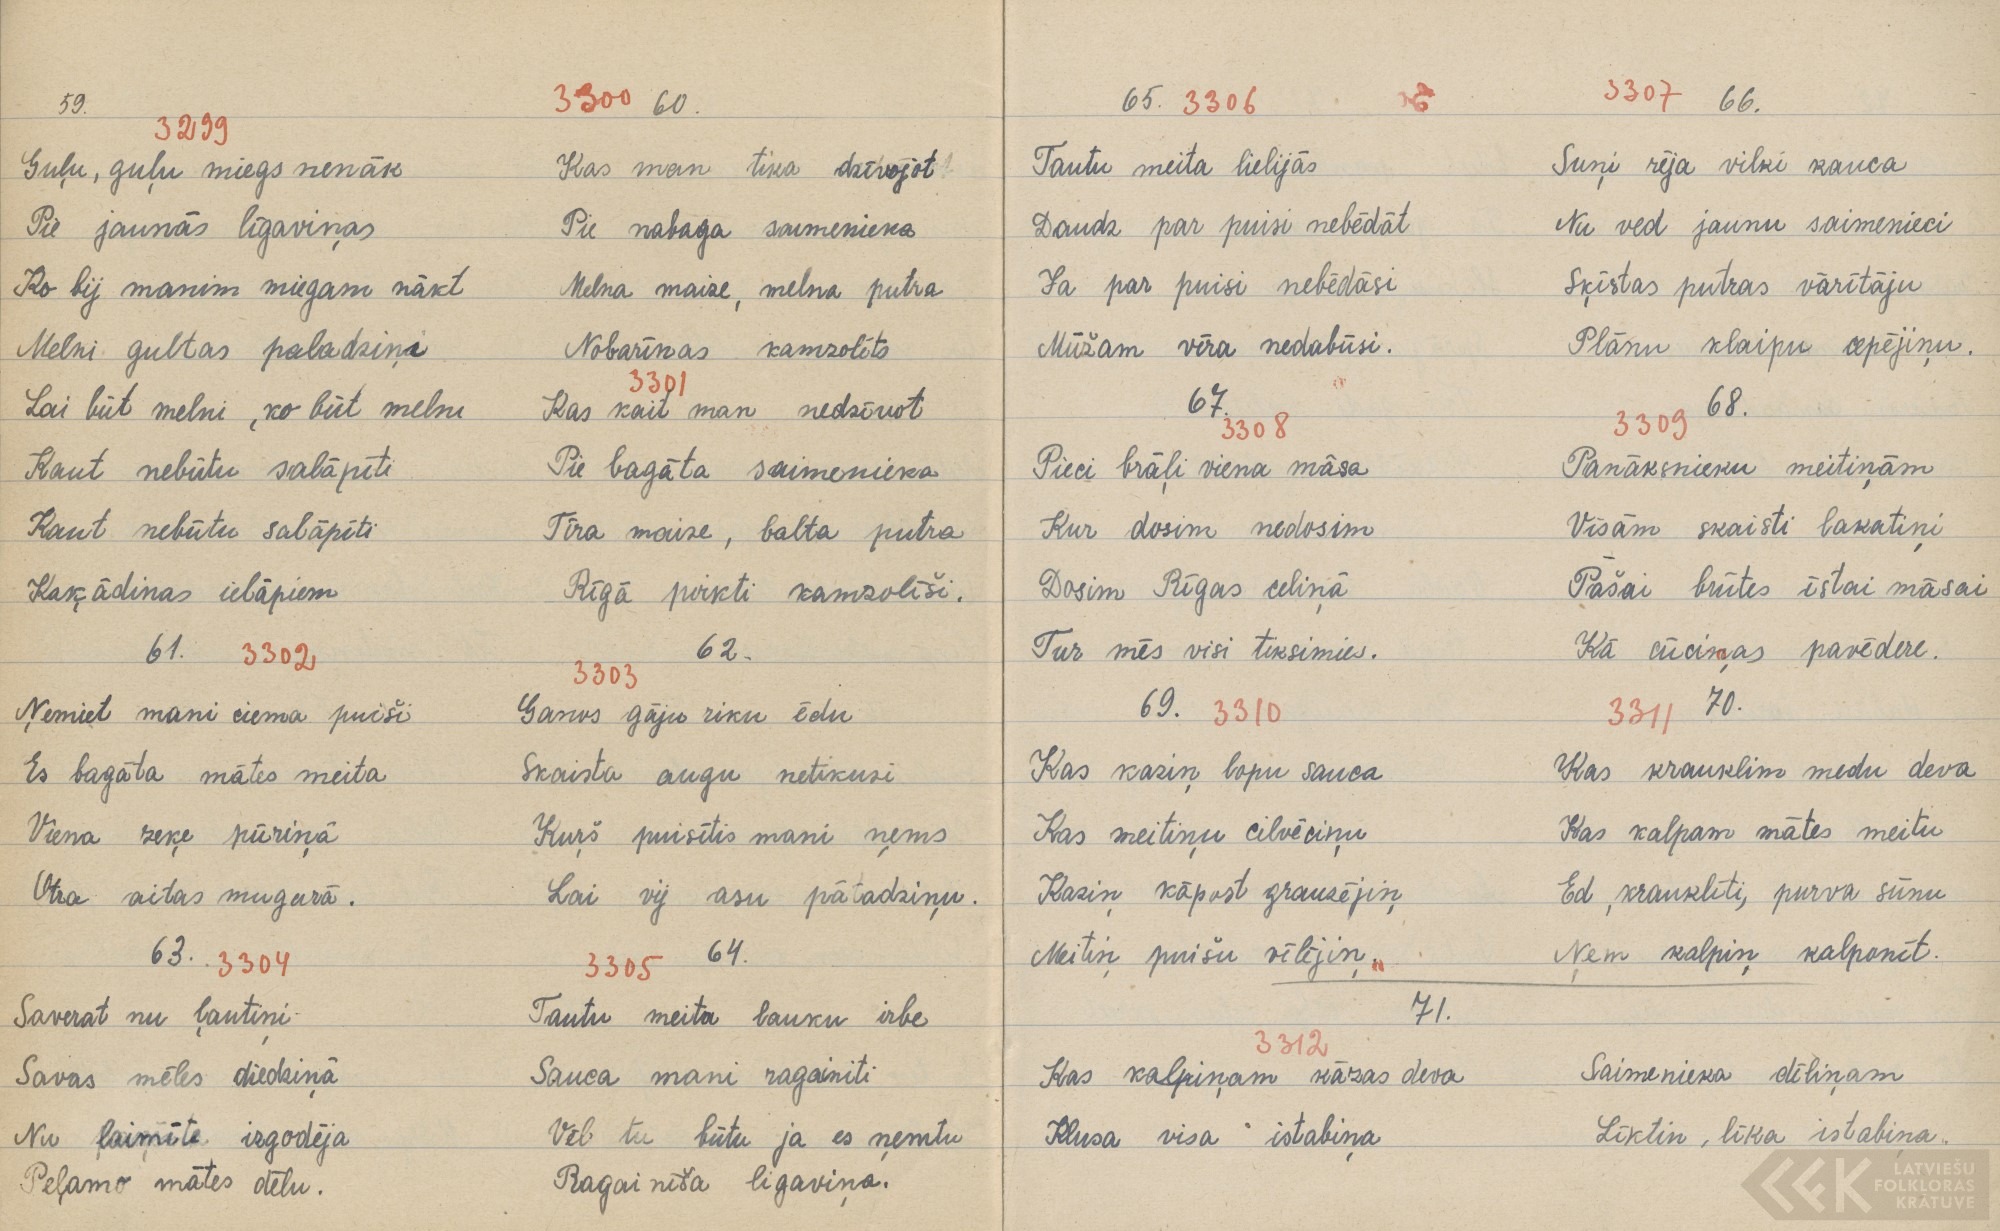 59.
3299
Guļu, guļu miegs nenāk
Pie jaunās līgaviņas
Ko bij manim miegam nākt
Melni gultas paladziņi
Lai būt melni, ko būt melni
Kaut nebūtu salāpīti
Kaut nebūtu salāpīti
Kaķādinas ielāpiem
3300 60.
Kas man tika dzīvojot
Pie nabaga saimenieka
Melna maize, melna putra
Nobarīnas kamzolīts
3301
Kas kait man nedzīvot
Pie bagāta saimenieka
Tīra maize, balta putra
Rīgā pirkti kamzolīši.
61. 3302
Ņemiet mani ciema puiši
Es bagāta mātes meita
Viena zeķe pūriņā
Otra aitas mugurā.
62.
3303
Ganos gāju riku ēdu
Skaista augu netikusi
Kuŗš puisītis mani ņems
Lai vij asu pātadziņu.
63. 3304
Saverat nu ļautiņi
Savas mēles diedziņā
Nu laimīte izgodēja
Peļamo mātes dēlu.
3305 64.
Tautu meita lauku irbe
Sauca mani ragainiti
Vēl tu būtu ja es ņemtu
Ragainīša līgaviņa.
65. 3306
Tautu meita lielijās
Daudz par puisi nebēdāt
Ja par puisi nebēdāsi
Mūžam vīra nedabūsi.
3307 66.
Suņi rēja vilki kauca
Nu ved jaunu saimenieci
Šķīstas putras vārītāju
Plānu klaipu cepējiņu.
67.
3308
Pieci brāļi viena māsa
Kur dosim nedosim
Dosim Rīgas celiņā
Tur mēs visi tiksimies.
68.
3309
Panāksnieku meitiņām
Visām skaisti lakatiņi
Pašai brūtes īstai māsai
Kā cūciņas pavēdere.
69. 3310
Kas kaziņ lopu sauca
Kas meitiņu cilvēciņu
Kaziņ kāpost grauzējiņ
Meitiņ puišu vīlējiņ.
3311 70.
Kas krauklim medu deva
Kas kalpam mātes meitu
Ed, krauklīti, purva sūnu
Ņem kalpiņ kalponīt.
71.
3312
Kas kalpiņam kāzas deva
Klusa visa istabiņa
Saimenieka dēliņam
Līktin, līka istabiņa.
LATVIEŠU
FOLKLORAS
KRĀTUVE